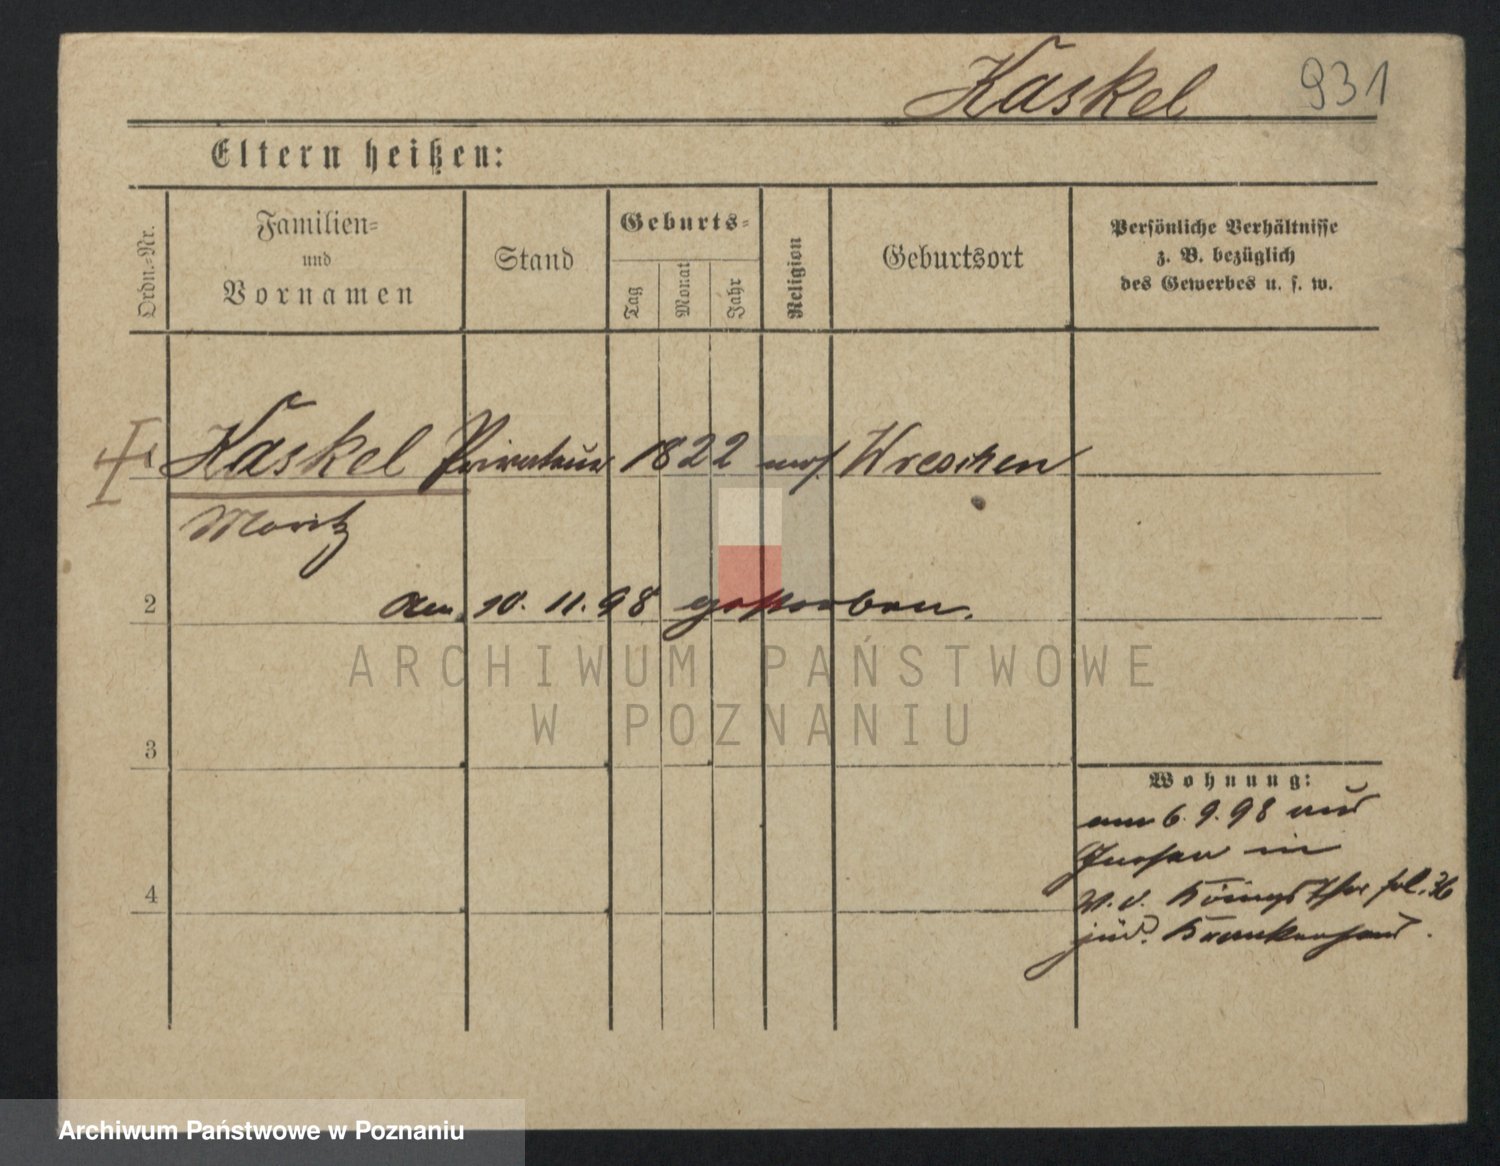 Kaskel 931
Eltern heißen:
Ordn.=Nr.
Familien=
und
Vornamen
Stand
Geburts=
Tag
Monat
Jahr
Religion
Geburtsort
Persönliche Verhältnisse
z. B. bezüglich
des Gewerbes u. s. w.
1 Kaskel 1822 mos. Wreschen
Moritz
2 den 10. 11. 98 gestorben.
ARCHIWUM PAŃSTWOWE
W POZNANIU
3
Wohnung:
am 6. 9. 98 aus
Gnesen in
4
W. d. Königsthor fol. 36
jüd. Krankenhaus.
Archiwum Państwowe w Poznaniu